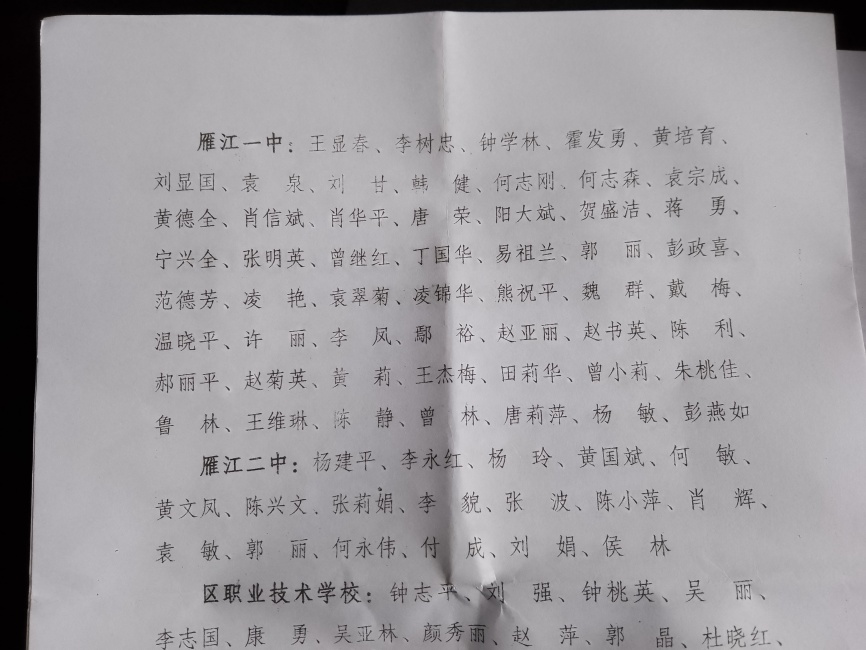 雁江一中：王显春、李树忠、钟学林、霍发勇、黄培育、
刘显国、袁　泉、刘　甘、韩　健、何志刚、何志森、袁宗成、
黄德全、肖信斌、肖华平、唐　荣、阳大斌、贺盛洁、蒋　勇、
宁兴全、张明英、曾继红、丁国华、易祖兰、郭　丽、彭政喜、
范德芳、凌　艳、袁翠菊、凌锦华、熊祝平、魏　群、戴　梅、
温晓平、许　丽、李　凤、鄢　裕、赵亚丽、赵书英、陈　利、
郝丽平、赵菊英、黄　莉、王杰梅、田莉华、曾小莉、朱桃佳、
鲁　林、王维琳、陈　静、曾　林、唐莉萍、杨　敏、彭燕如
雁江二中：杨建平、李永红、杨　玲、黄国斌、何　敏、
黄文凤、陈兴文、张莉娟、李　貌、张　波、陈小萍、肖　辉、
袁　敏、郭　丽、何永伟、付　成、刘　娟、侯　林
区职业技术学校：钟志平、刘　强、钟桃英、吴　丽、
李志国、康　勇、吴亚林、颜秀丽、赵　萍、郭　晶、杜晓红、